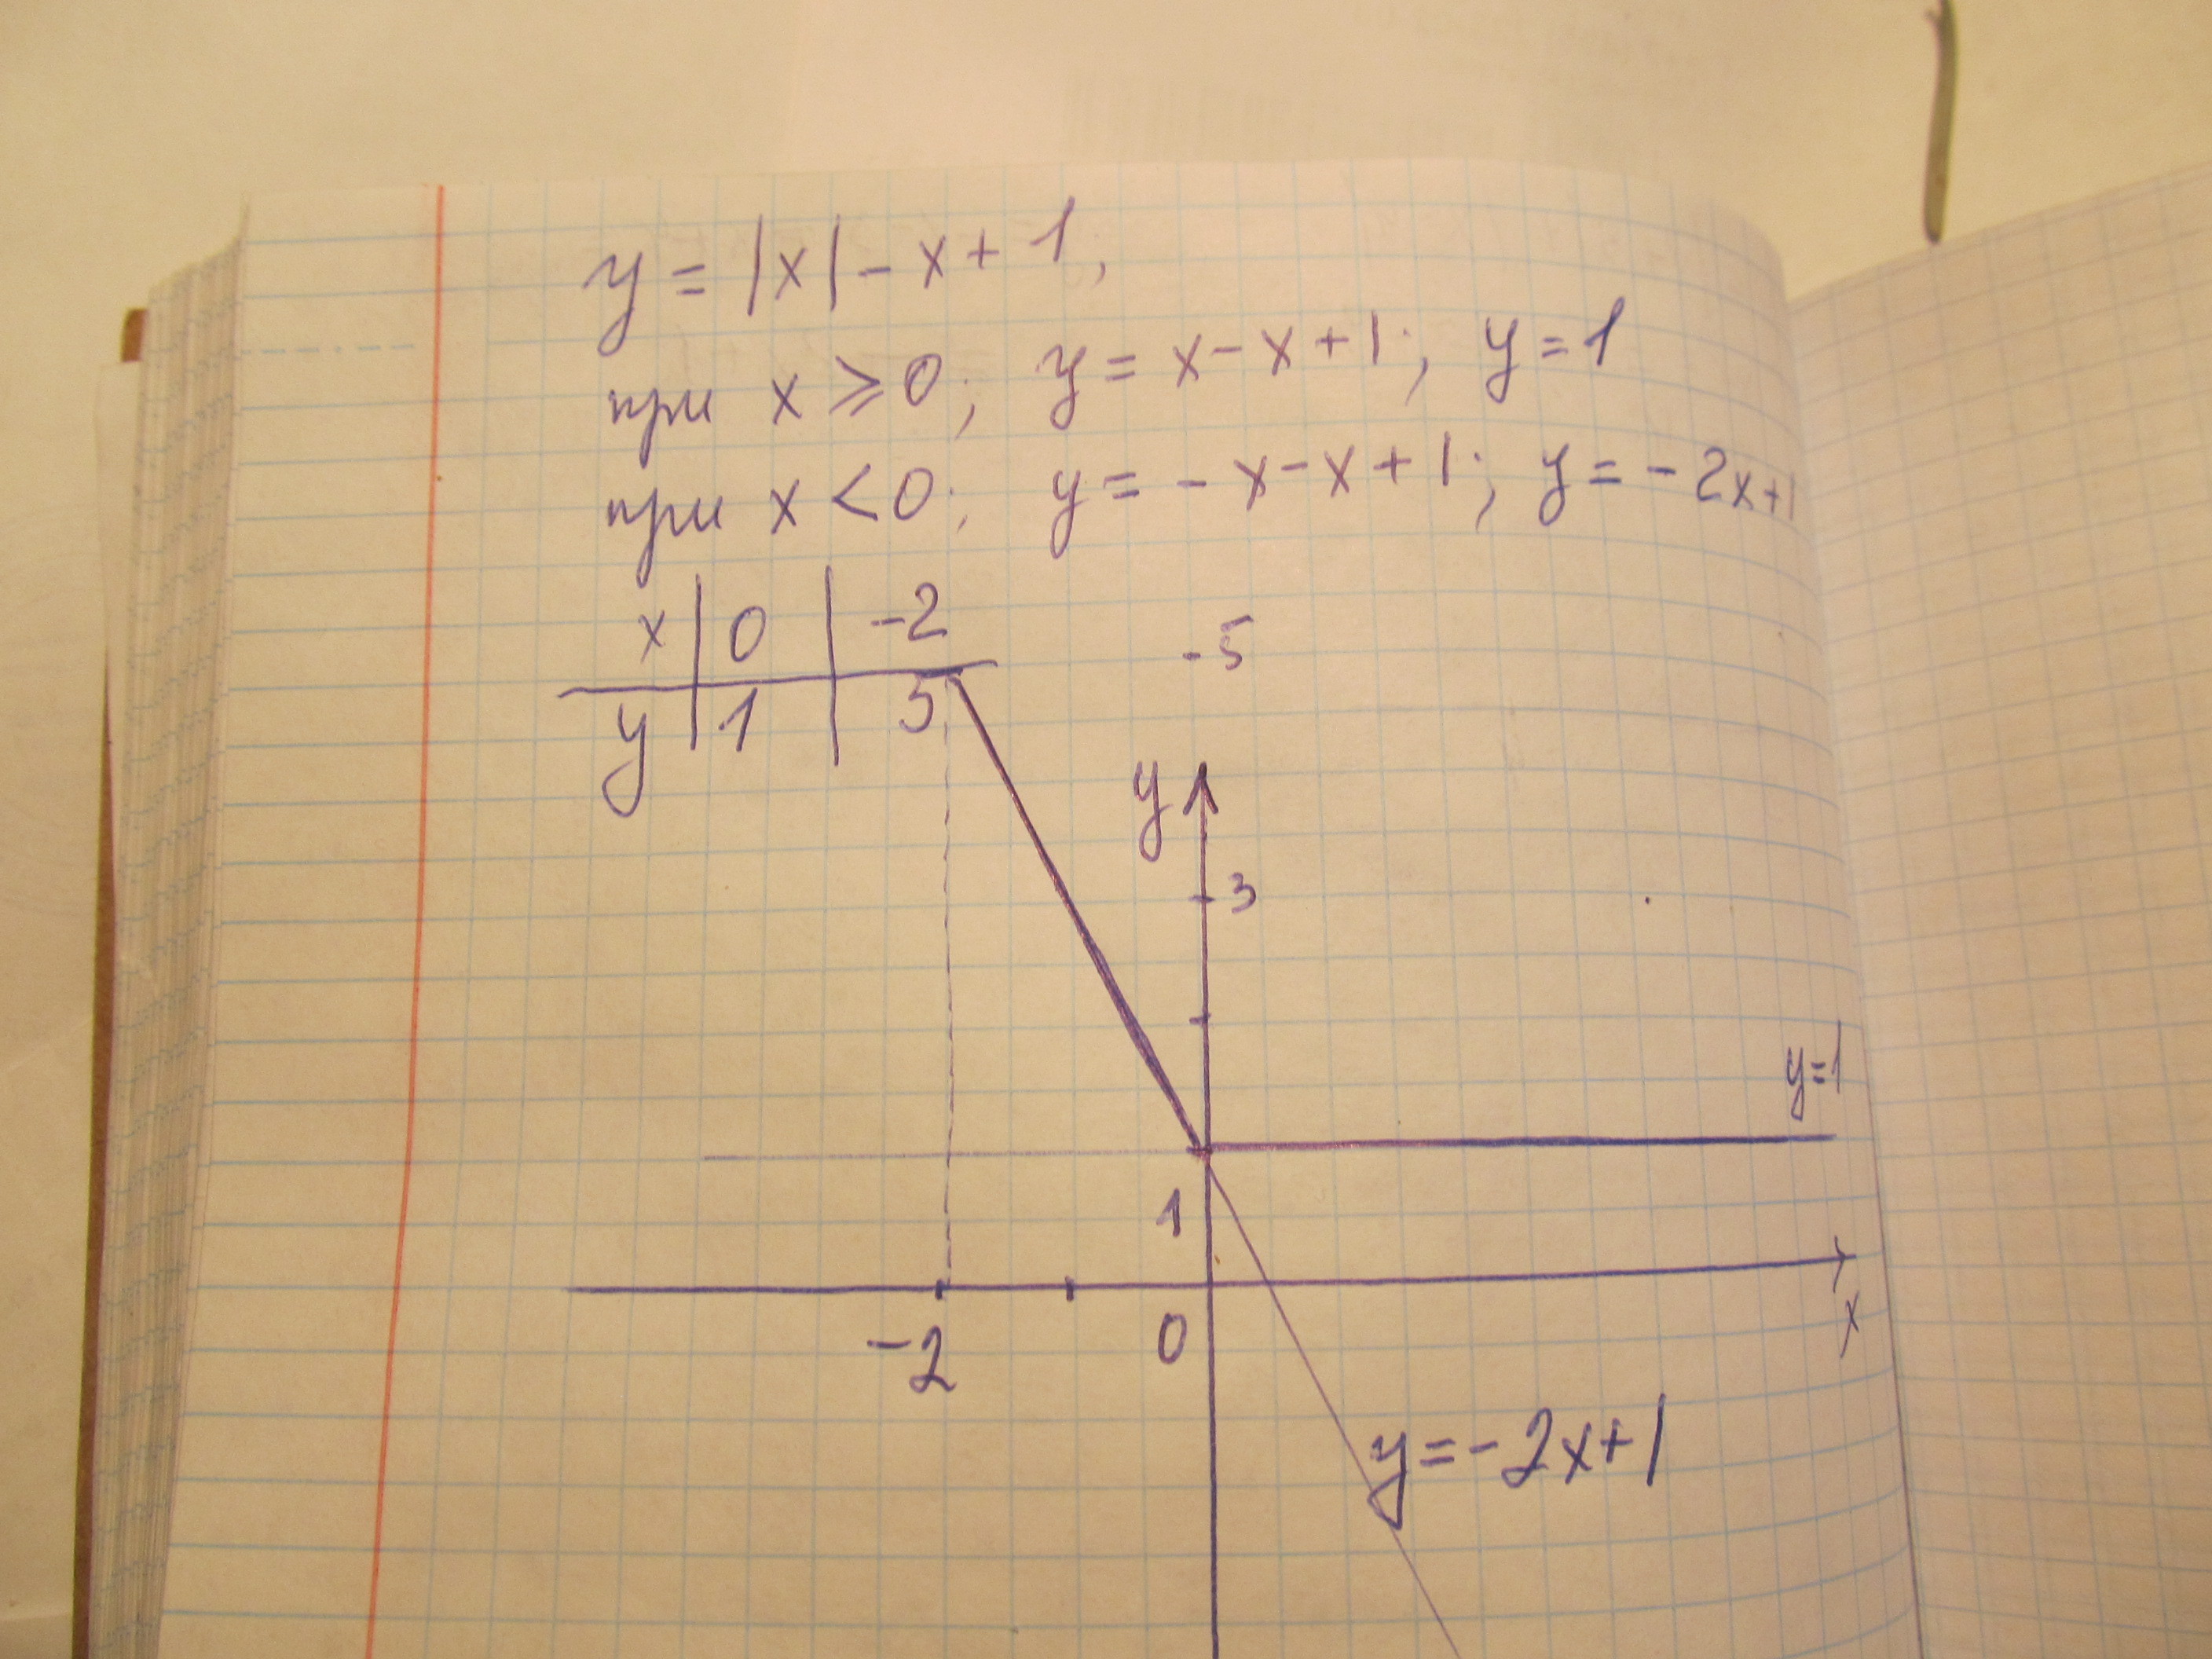 y = |x| - x + 1,
при x ⩾ 0; y = x - x + 1; y = 1
при x < 0; y = - x - x + 1; y = - 2x+1
x | 0 | -2
y | 1 | 5
- 5
y
3
y=1
1
-2 0 x
y=-2x+1